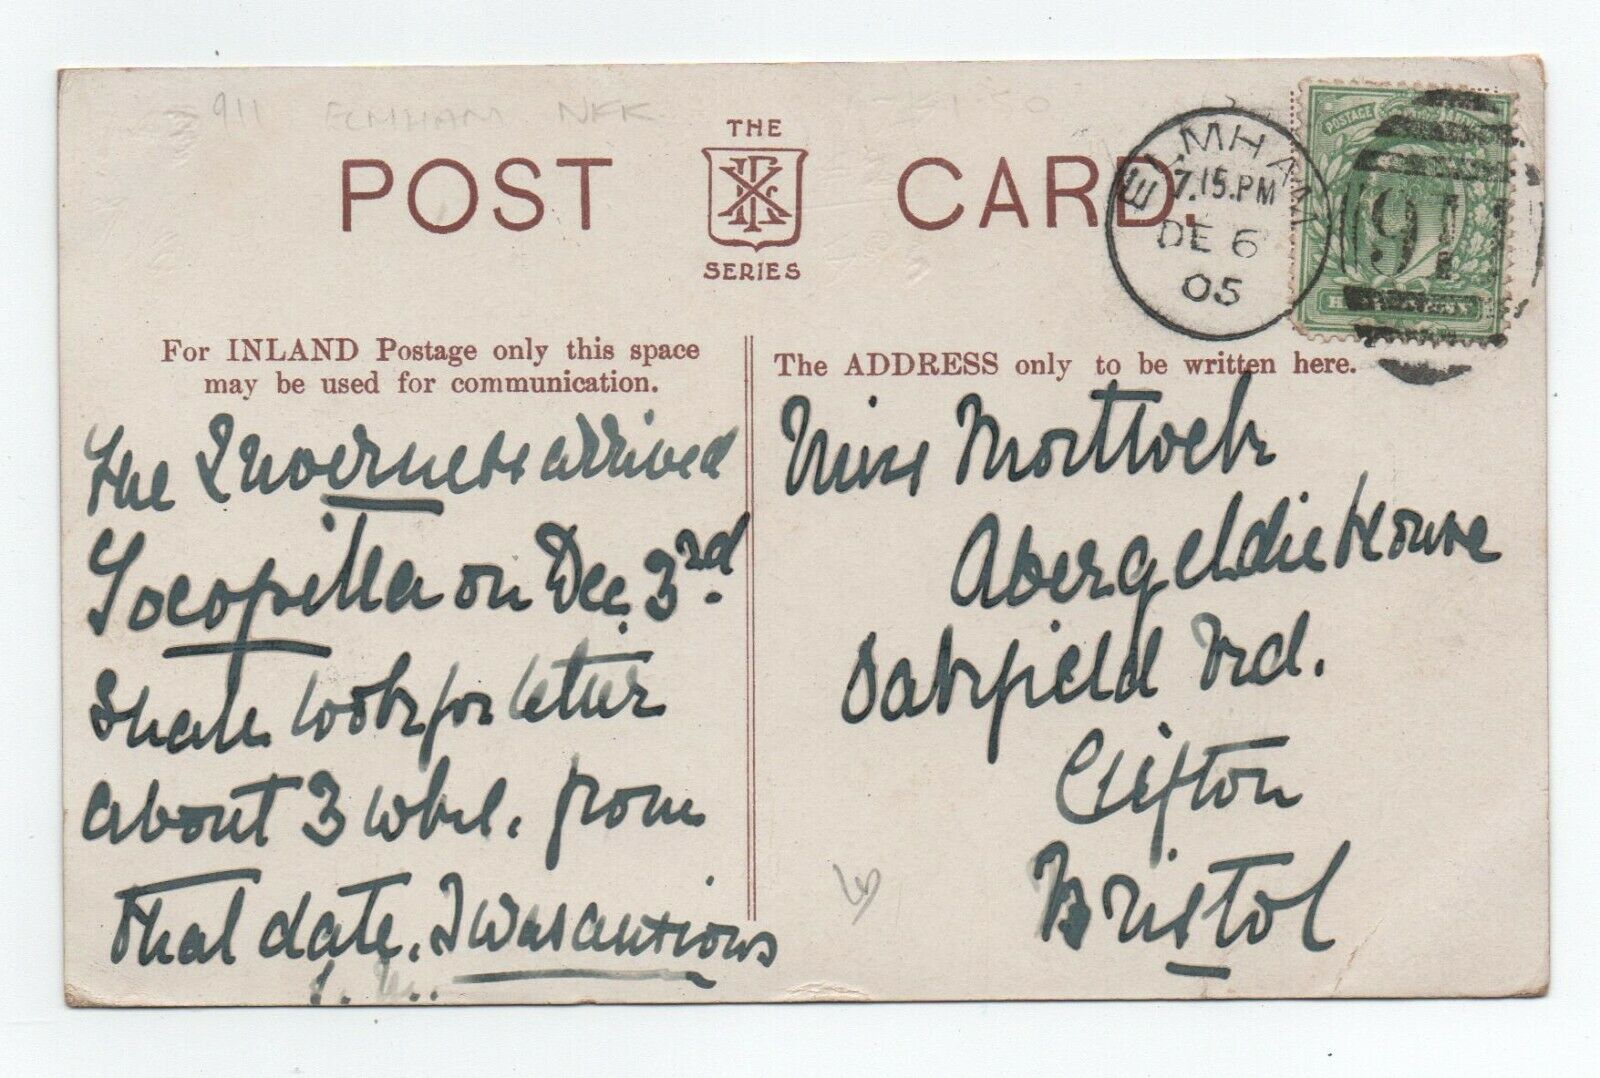 911 ELMHAM NFK
THE
POST CARD.
SERIES
ELMHAM
7.15.PM
DE 6
05
911
POSTAGE
For INLAND Postage only this space
may be used for communication.
The ADDRESS only to be written here.
The Inverness arrived
Tocopilla on Dec. 3rd.
Shall look for letter
about 3 wks. from
that date. I was anxious
Miss Mortlock
Abergeldie House
Oakfield Rd.
Clifton
Bristol